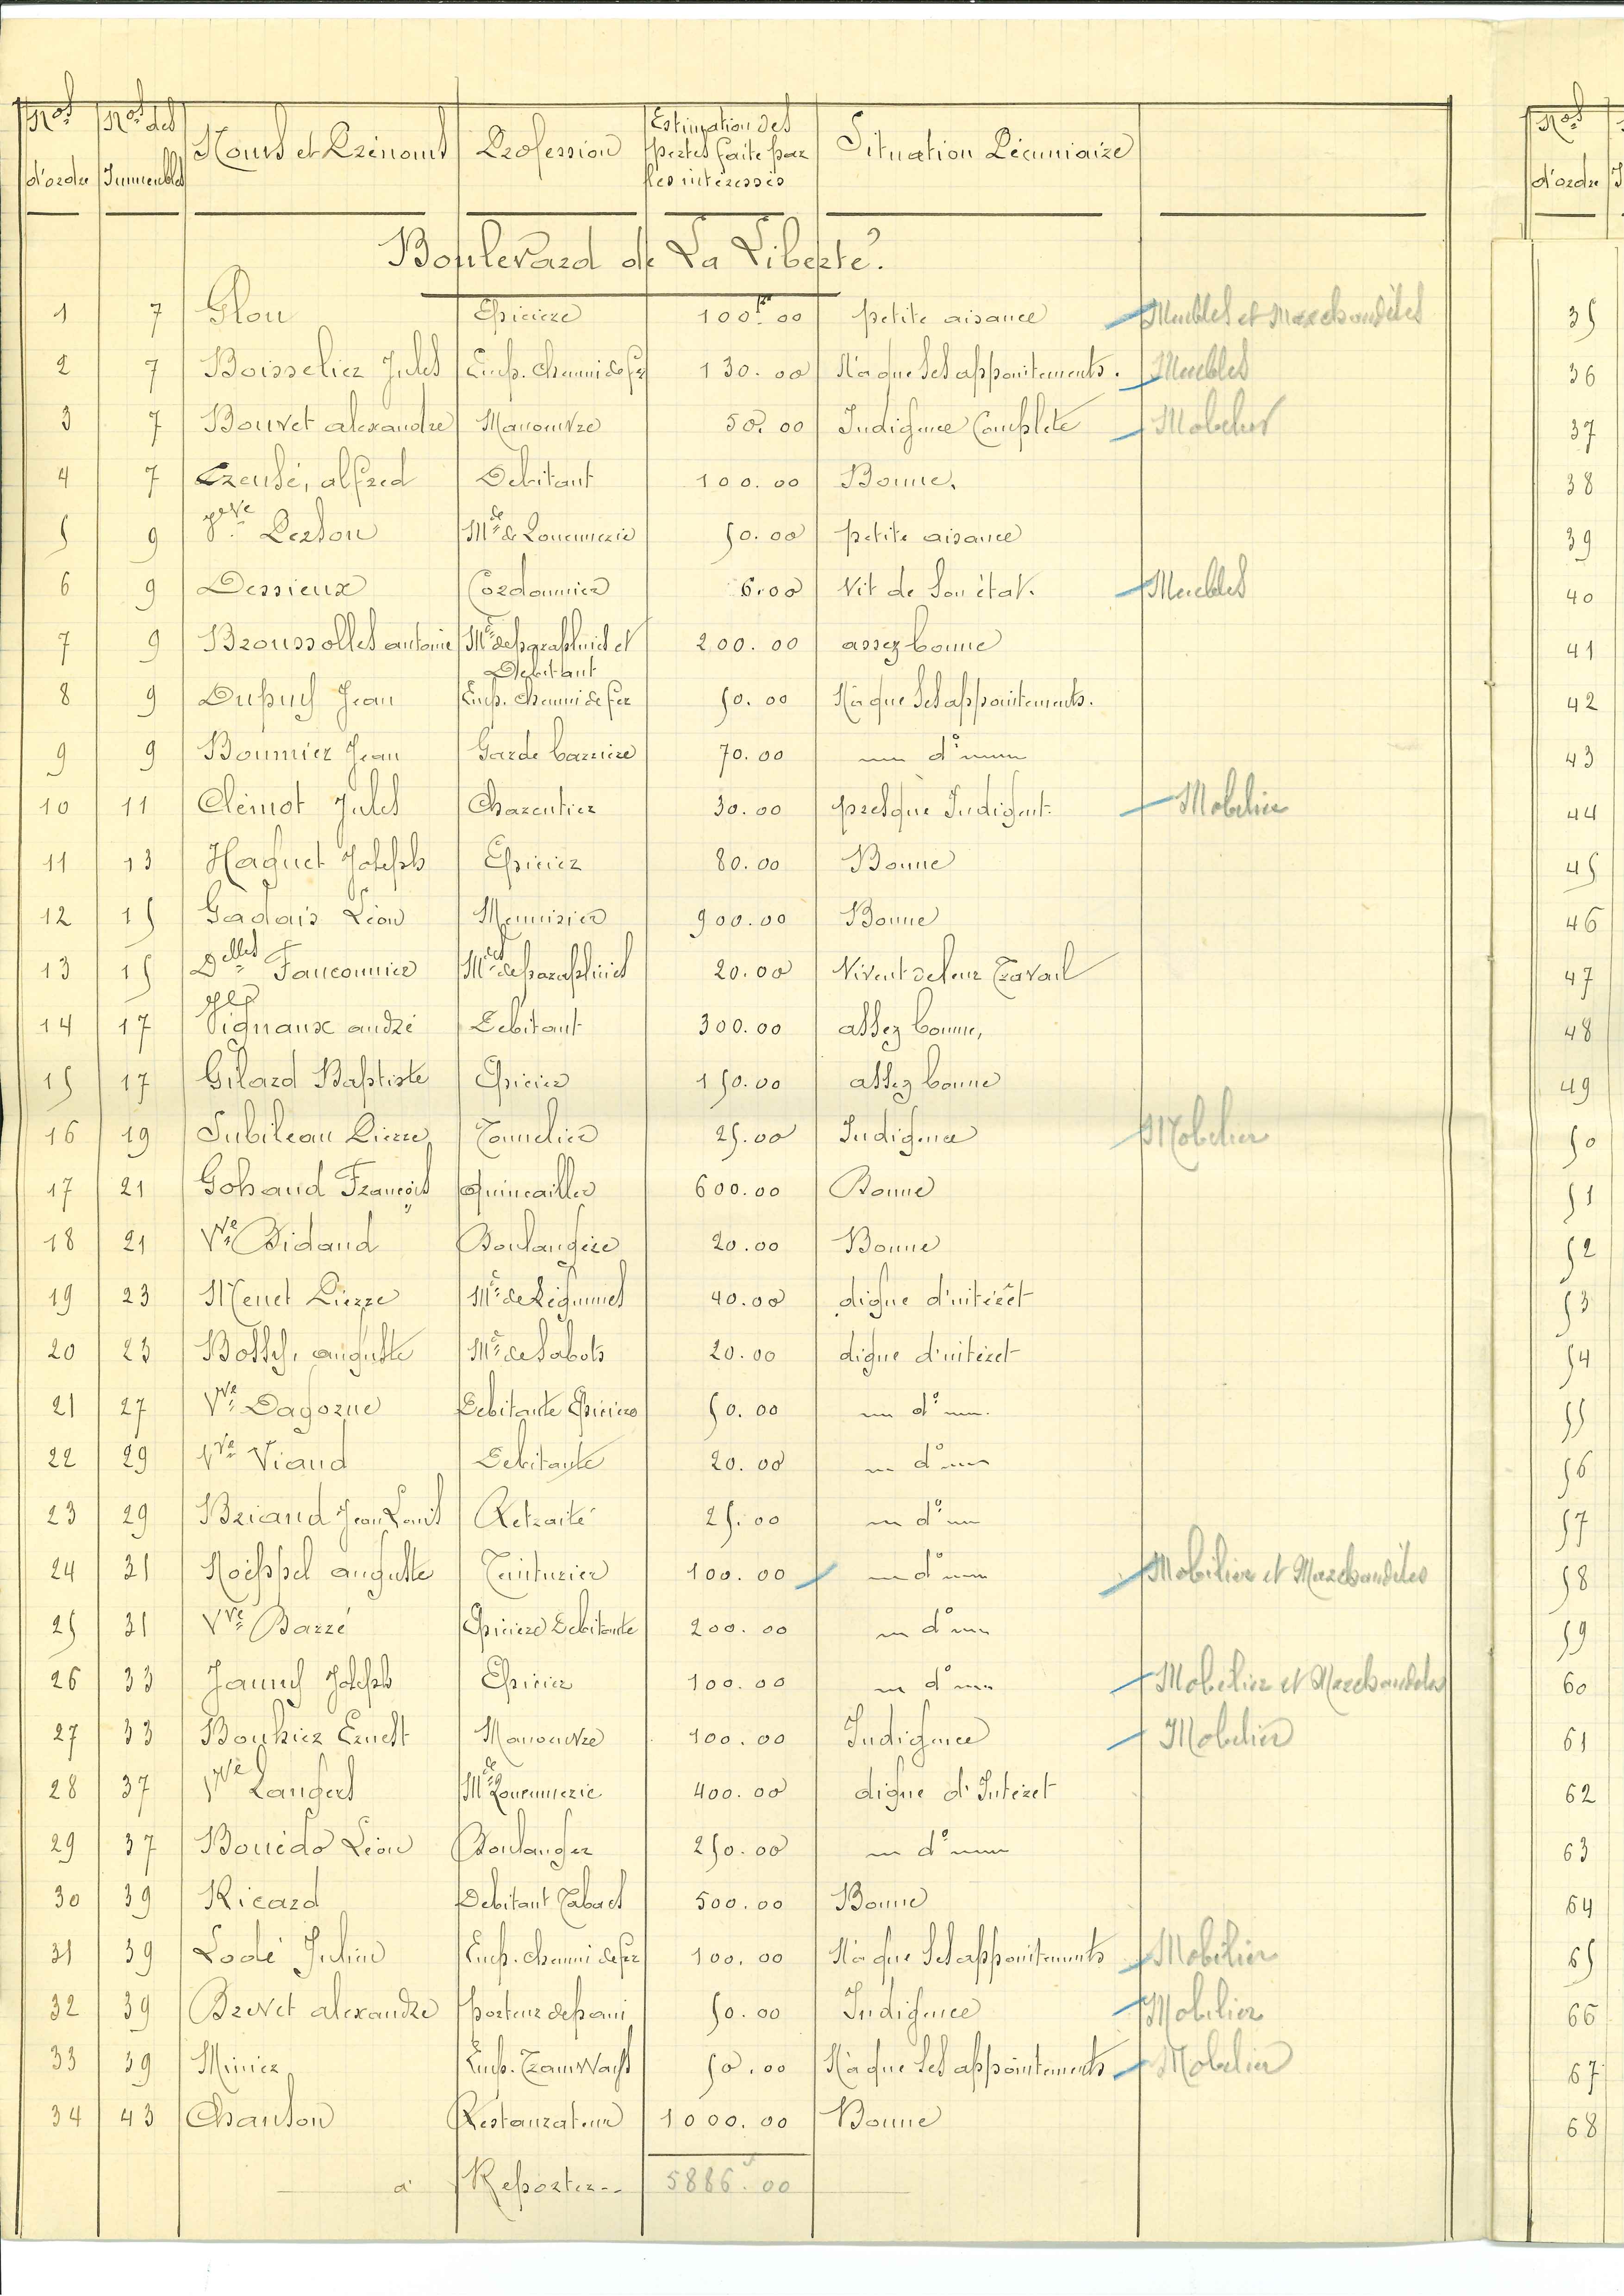 Nos Nos des Noms et Prénoms Profession Estimation des Situation Pécuniaire
pertes faite par
d'ordre Immeubles les intéressés
Boulevard de La Liberté.
1 7 Glou Epicière 100f.00 petite aisance Meubles et Marchandises
2 7 Boisselier Jules Emp. Chemin de fer 130.00 N'a que Ses appointements. Meubles
3 7 Bouvet alexandre Manouvre 50.00 Indigence Complète Mobilier
4 7 Creusé, alfred Debitant 100.00 Bonne.
5 9 Vve Person Mde de Rouennerie 50.00 petite aisance
6 9 Dessieux Cordonnier 6.00 Vit de Son état. Meubles
7 9 Broussolles antoine Md de parapluies et 200.00 assez bonne
Debitant
8 9 Dupuy Jean Emp. Chemin de fer 50.00 N'a que Ses appointements.
9 9 Boumier Jean Garde barrière 70.00 do
10 11 Clémot Jules Charentier 30.00 presque Indigent. Mobilier
11 13 Haquet Joseph Epicier 80.00 Bonne
12 15 Gadais Léon Menuisier 900.00 Bonne
13 15 Delles Fauconnier Mdes de parapluies 20.00 Vivent de leur Travail
14 17 Vignaux andré Debitant 300.00 assez bonne,
15 17 Gilard Baptiste Epicier 150.00 assez bonne
16 19 Jubileau Pierre Tonnelier 25.00 Indigence Mobilier
17 21 Gohaud François Quincailler 600.00 Bonne
18 21 Vve Bidaud Boulangère 20.00 Bonne
19 23 Menet Pierre Md de Légumes 40.00 digne d'intérêt
20 23 Bossy, auguste Md de Sabots 20.00 digne d'intéret
21 27 Vve Dagorne Debitante Epicière 50.00 do
22 29 Vve Viaud Debitante 20.00 do
23 29 Briand Jean Louis Retraité 25.00 do
24 31 auguste Teinturier 100.00 do Mobilier et Marchandises
25 31 Vve Barré Epicière Debitante 200.00 do
26 33 Jauny Joseph Epicier 100.00 do Mobilier et Marchandises
27 33 Bouhier Ernest Manouvre 100.00 Indigence Mobilier
28 37 Vve Mde Rouennerie 400.00 digne d'Intéret
29 37 Bouédo Léon Boulanger 250.00 do
30 39 Ricard Debitant Tabacs 500.00 Bonne
31 39 Lodé Julien Emp. chemin de fer 100.00 N'a que Ses appointements Mobilier
32 39 Brevet alexandre porteur de pain 50.00 Indigence Mobilier
33 39 Minier Emp. TramWays 50.00 N'a que Ses appointements Mobilier
34 43 Chanson Restaurateur 1000.00 Bonne
à Reporter-- 5886f.00
Nos
d'ordre
35
36
37
38
39
40
41
42
43
44
45
46
47
48
49
50
51
52
53
54
55
56
57
58
59
60
61
62
63
64
65
66
67
68